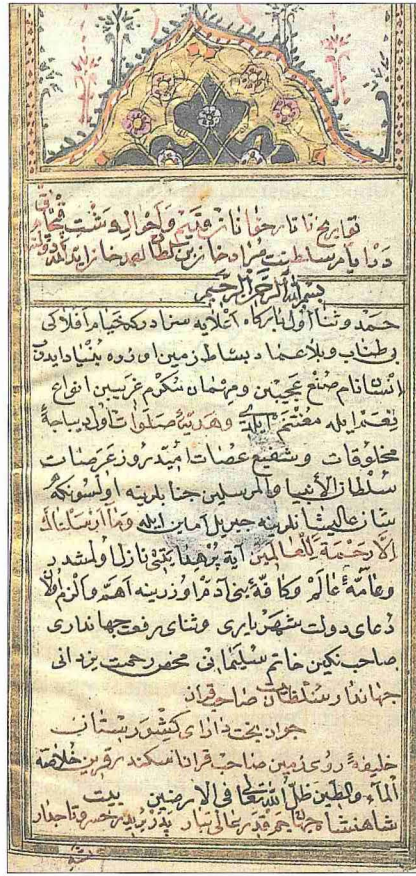 تواریخ تاتار خانان قدیم و احوال دشت قبچاق
در ایام سلطنت مراد خان بن سلطان احمد خان زاید الله دولته
بسم الله الرحمن الرحیم
حمد و ثنا اول بارکاه اعلایه سزادر که خیام افلاکی
بی طناب و بلا عماد بساط زمین اوزره بنیاد ایدوب
انسانام صنع عجیبین و مهمان مکرم غریبین انواع
نعم ایله مغتنم ایلدی و هدیهٔ صلوات اول دیباجهٔ
مخلوقات و شفیع عصات امید روز عرصات
سلطان الأنبیا و المرسلین جنابلرینه اولسونکه
شان عالیشانلرینه جبریل آمین ایله وما ارسلناك
الا رحمة للعالمین آیهٔ برهان نازل اولمشدر
و عامهٔ عالم و کافهٔ بنی آدم اوزرینه اهم و الزم اولان
دعای دولت شهریاری و ثنای رفعت جهانداری
صاحب نکین خاتم سلیمانی محض رحمت یزدانی
جهاندار سلطان صاحب قران
جوان بخت دارای کشورستان
خلیفهٔ روی زمین صاحب قران اسکندر قرین خلاصة
المآء والطین ظل الله تعالی فی الارضین بیت
شاهنشاه جم قدر عالی تبار پدر بر پدر خسرو تاجدار